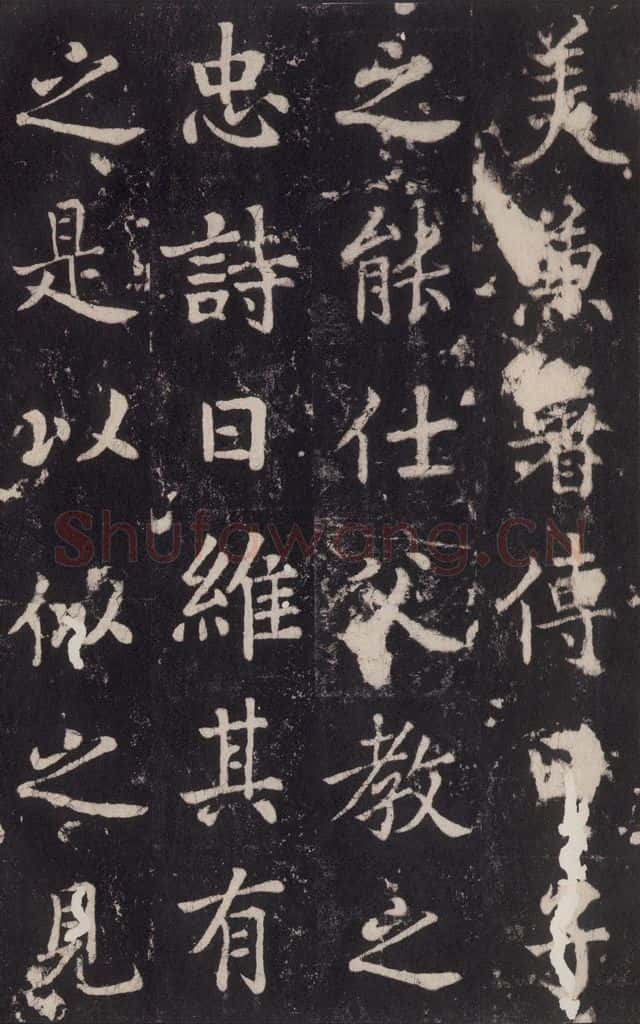 美兼著傳曰子
之能仕父教之
忠詩曰維其有
之是以似之見
Shufawang.CN